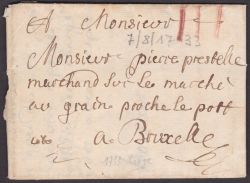 A Monsieur
7/8/1733
Monsieur pierre prestelle
marchand sur les marché
au grain proche le pott
a Bruxelle
1733 Liège